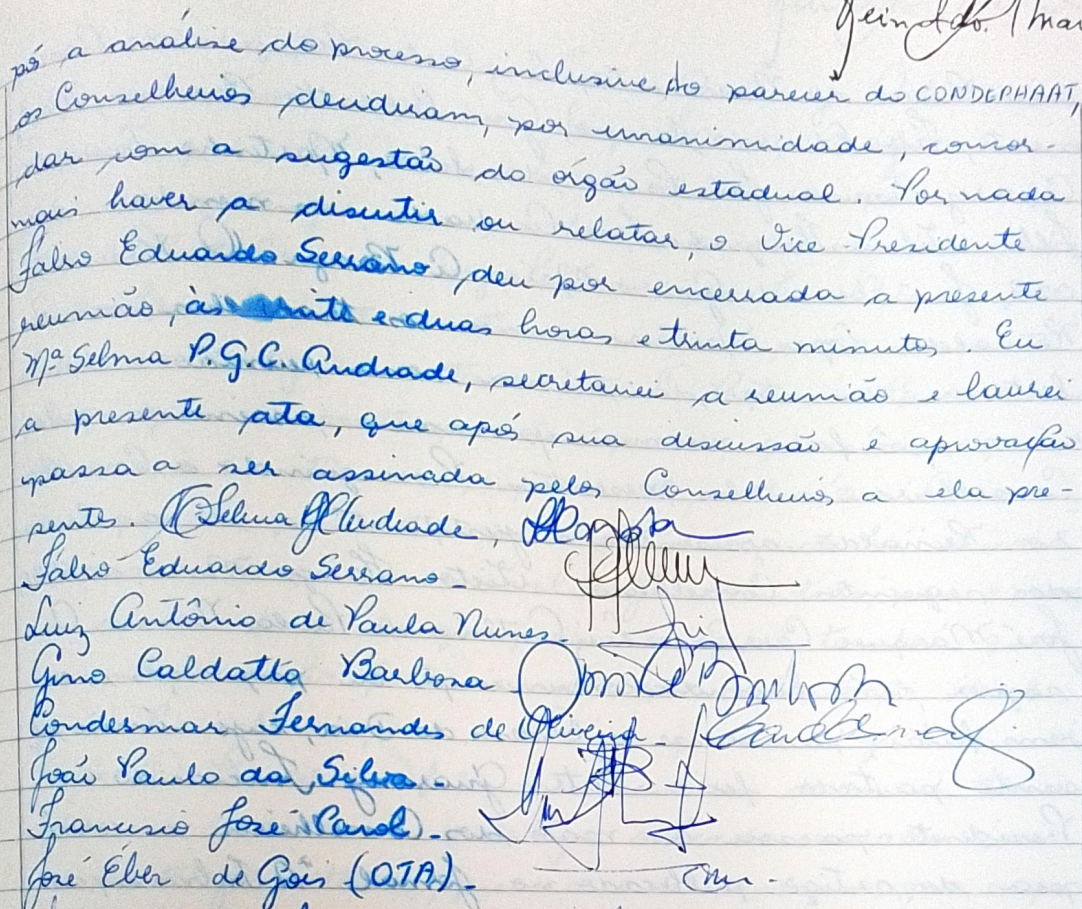 pós a análise do processo, inclusive do parecer do CONDEPHAAT,
os Conselheiros decidiram, por unanimidade, concor-
dar com a sugestão do órgão estadual. Por nada
mais haver a discutir ou relatar, o Vice-Presidente
Jalso Eduardo Serrano, deu por encerrada a presente
reunião, às vinte e duas horas e trinta minutos. Eu
Mª Selma P.G.C. Andrade, secretariei a reunião e laurei
a presente ata, que após sua discussão e aprovação
passa a ser assinada pelos Conselheiros a ela pre-
sentes. Selma Andrade,
Jalso Eduardo Serrano -
Luiz Antônio de Paula Nunes -
Gino Caldatto Barbosa
Condesmar Fernandes de Oliveira - Condesmar
João Paulo da Silva -
Francisco José Carol -
José Éber de Góis (OTA) -